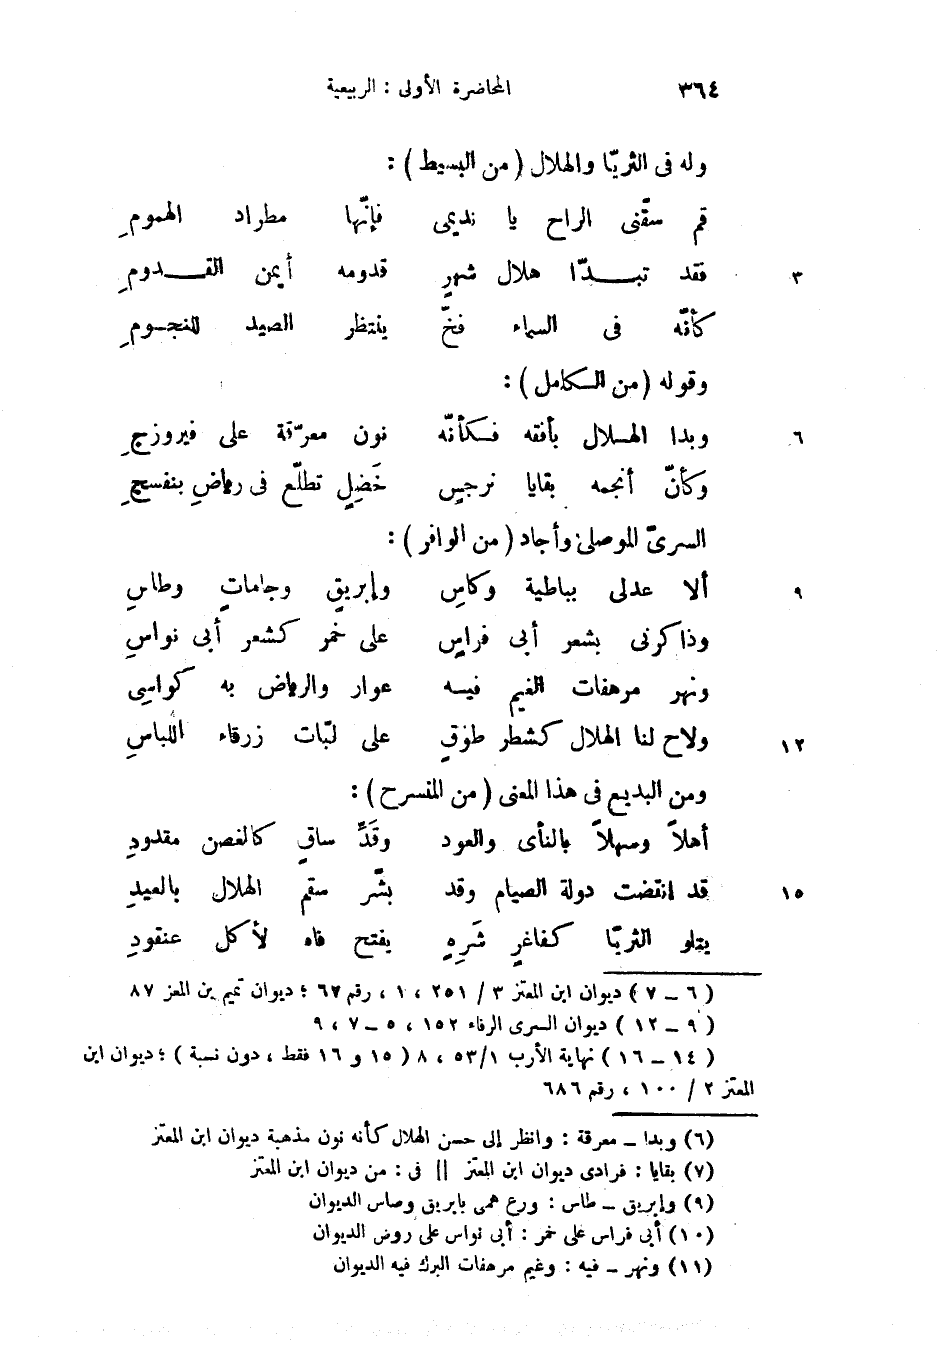 ٣٦٤ المحاضرة الأولى : الربيعية
وله فى الثريّا والهلال ( من البسيط ) :
قم سقّنى الراح يا نديمى فإنّها مطراد الهمومِ
٣ فقد تبــدّا هلال شهرٍ قدومه أيمن القــدومِ
كأنّه فى السماء فخّ ينتظر الصيد للنجومِ
وقوله ( من الكامل ) :
٦ وبدا الهلال بأفقه فكأنّه نون معرّقة على فيروزجِ
وكأنّ أنجمه بقايا نرجسٍ خَضِلٍ تطلّع فى رياضِ بنفسجِ
السرىّ الموصلىّ وأجاد ( من الوافر ) :
٩ ألا عدلى بباطية وكاسِ وإبريقٍ وجاماتٍ وطاسِ
وذاكرنى بشعر أبى فراسٍ على خمر كشعر أبى نواسِ
ونهر مرهفات الغيم فيه عوار والرياض به كواسِى
١٢ ولاح لنا الهلال كشطر طوْقٍ على لبّات زرقاء اللباسِ
ومن البديع فى هذا المعنى ( من المنسرح ) :
أهلاً وسهلاً بالنأى والعود وقَدِّ ساقٍ كالغصن مقدودِ
١٥ قد انقضت دولة الصيام وقد بشّر سقم الهلال بالعيدِ
يتلو الثريّا كفاغرٍ شَرِهٍ يفتح فاه لأكل عنقودِ
( ٦ – ٧ ) ديوان ابن المعتز ٣ / ٢٥١ ، ١ ، رقم ٦٧ ؛ ديوان تميم بن المعز ٨٧
( ٩ – ١٢ ) ديوان السرى الرفاء ١٥٢ ، ٥ – ٧ ، ٩
( ١٤ – ١٦ ) نهاية الأرب ٥٣/١ ، ٨ ( ١٥ و ١٦ فقط ، دون نسبة ) ؛ ديوان ابن
المعتز ٢ / ١٠٠ ، رقم ٦٨٦
(٦) وبدا – معرقة : وانظر إلى حسن الهلال كأنه نون مذهبة ديوان ابن المعتز
(٧) بقايا : فرادى ديوان ابن المعتز || فى : من ديوان ابن المعتز
(٩) وإبريق – طاس : ورع همى بابريق وصاس الديوان
(١٠) أبى فراس على خمر : أبى نواس على روض الديوان
(١١) ونهر – فيه : وغيم مرهفات البرك فيه الديوان